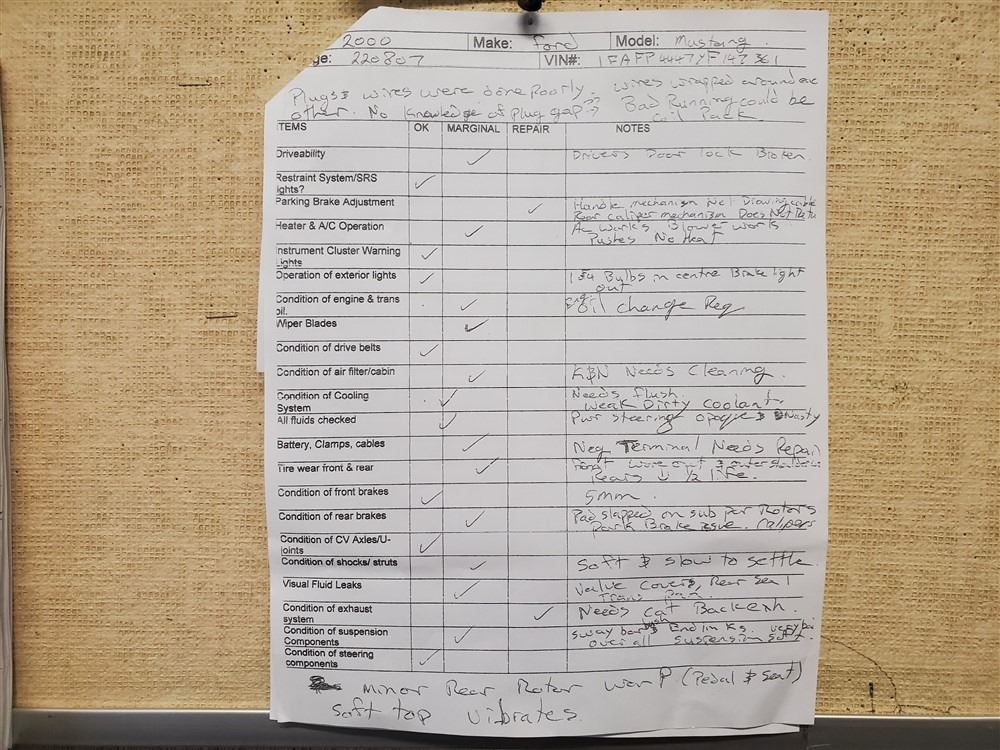 2000 Make: Ford Model: Mustang
ge: 220807 VIN#: 1FAFP4447YF147361
Plugs & wires were done poorly. wires wrapped around
other. No knowledge of plug gap?? Bad Running could be
coil Pack
ITEMS OK MARGINAL REPAIR NOTES
Driveability ✓ Drivers Door lock Broken.
Restraint System/SRS
lights? ✓
Parking Brake Adjustment ✓ Handle mechanism Not Drawing cable
Rear caliper mechanism Does Not
Heater & A/C Operation ✓ AC works Blower works
Pushes No Heat
Instrument Cluster Warning
Lights ✓
Operation of exterior lights ✓ Bulbs in centre Brake light
out
Condition of engine & trans
oil. ✓ eng. oil change Req.
Wiper Blades ✓
Condition of drive belts ✓
Condition of air filter/cabin ✓ K&N Needs Cleaning.
Condition of Cooling
System ✓ Needs flush.
weak Dirty coolant.
All fluids checked ✓ Pwr steering opaque & Nasty
Battery, Clamps, cables ✓ Neg Terminal Needs Repair
Tire wear front & rear ✓ front wore out & outer
Rears 1/2 life.
Condition of front brakes ✓ 5mm.
Condition of rear brakes ✓ Pad slapped on sub par Rotors
Park Brake issue. calipers
Condition of CV Axles/U-
joints ✓
Condition of shocks/ struts ✓ Soft & slow to settle
Visual Fluid Leaks ✓ Valve Covers, Rear Seal
Trans Pan.
Condition of exhaust
system ✓ Needs Cat Back exh.
Condition of suspension
Components ✓ sway bar bush & End links. very bad
over all suspension soft.
Condition of steering
components ✓
Minor Rear Rotor warp (Pedal & seat)
Soft top vibrates.